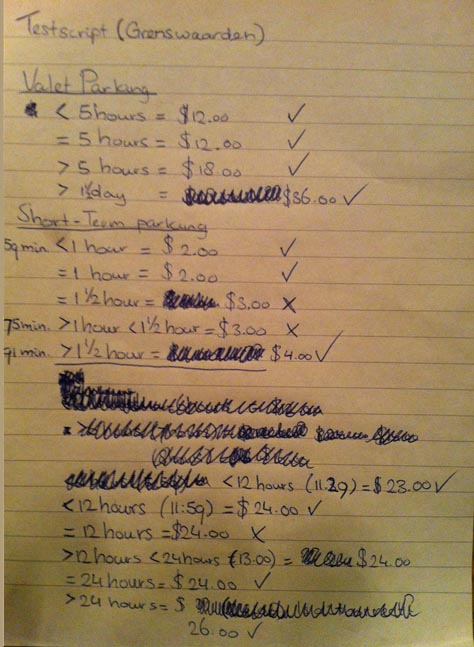 Testscript (Grenswaarden)
Valet Parking
< 5 hours = $12.00 ✓
= 5 hours = $12.00 ✓
> 5 hours = $18.00 ✓
> 1 day = $36.00 ✓
Short-Term parkung
59 min. < 1 hour = $2.00 ✓
= 1 hour = $2.00 ✓
= 1 1/2 hour = $3.00 X
75 min. > 1 hour < 1 1/2 hour = $3.00 X
91 min. > 1 1/2 hour = $4.00 ✓
< 12 hours (11:29) = $23.00 ✓
< 12 hours (11:59) = $24.00 ✓
= 12 hours = $24.00 X
> 12 hours < 24 hours (13:00) = $24.00
= 24 hours = $24.00 ✓
> 24 hours = $
26.00 ✓